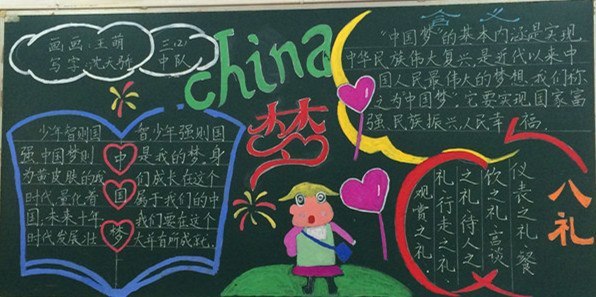 画画:王萌 三(2)
写字:沈天骄 中队
China
梦
含义
"中国梦"的基本内涵是实现
中华民族伟大复兴是近代以来中
国人民最伟大的梦想,我们称
之为中国梦,它要实现国家富
强民族振兴人民幸福.
少年智则国
强,中国梦则
为黄皮肤的我
时代,量化着
国,未来十年
时代发展壮
中
国
梦
智少年强则国
是我的梦,身
们成长在这个
属于我们的中
我们要在这个
大,年有所成
八礼
仪表之礼 餐
饮之礼 言谈
之礼 待人之
礼 行走之礼
观赏之礼.